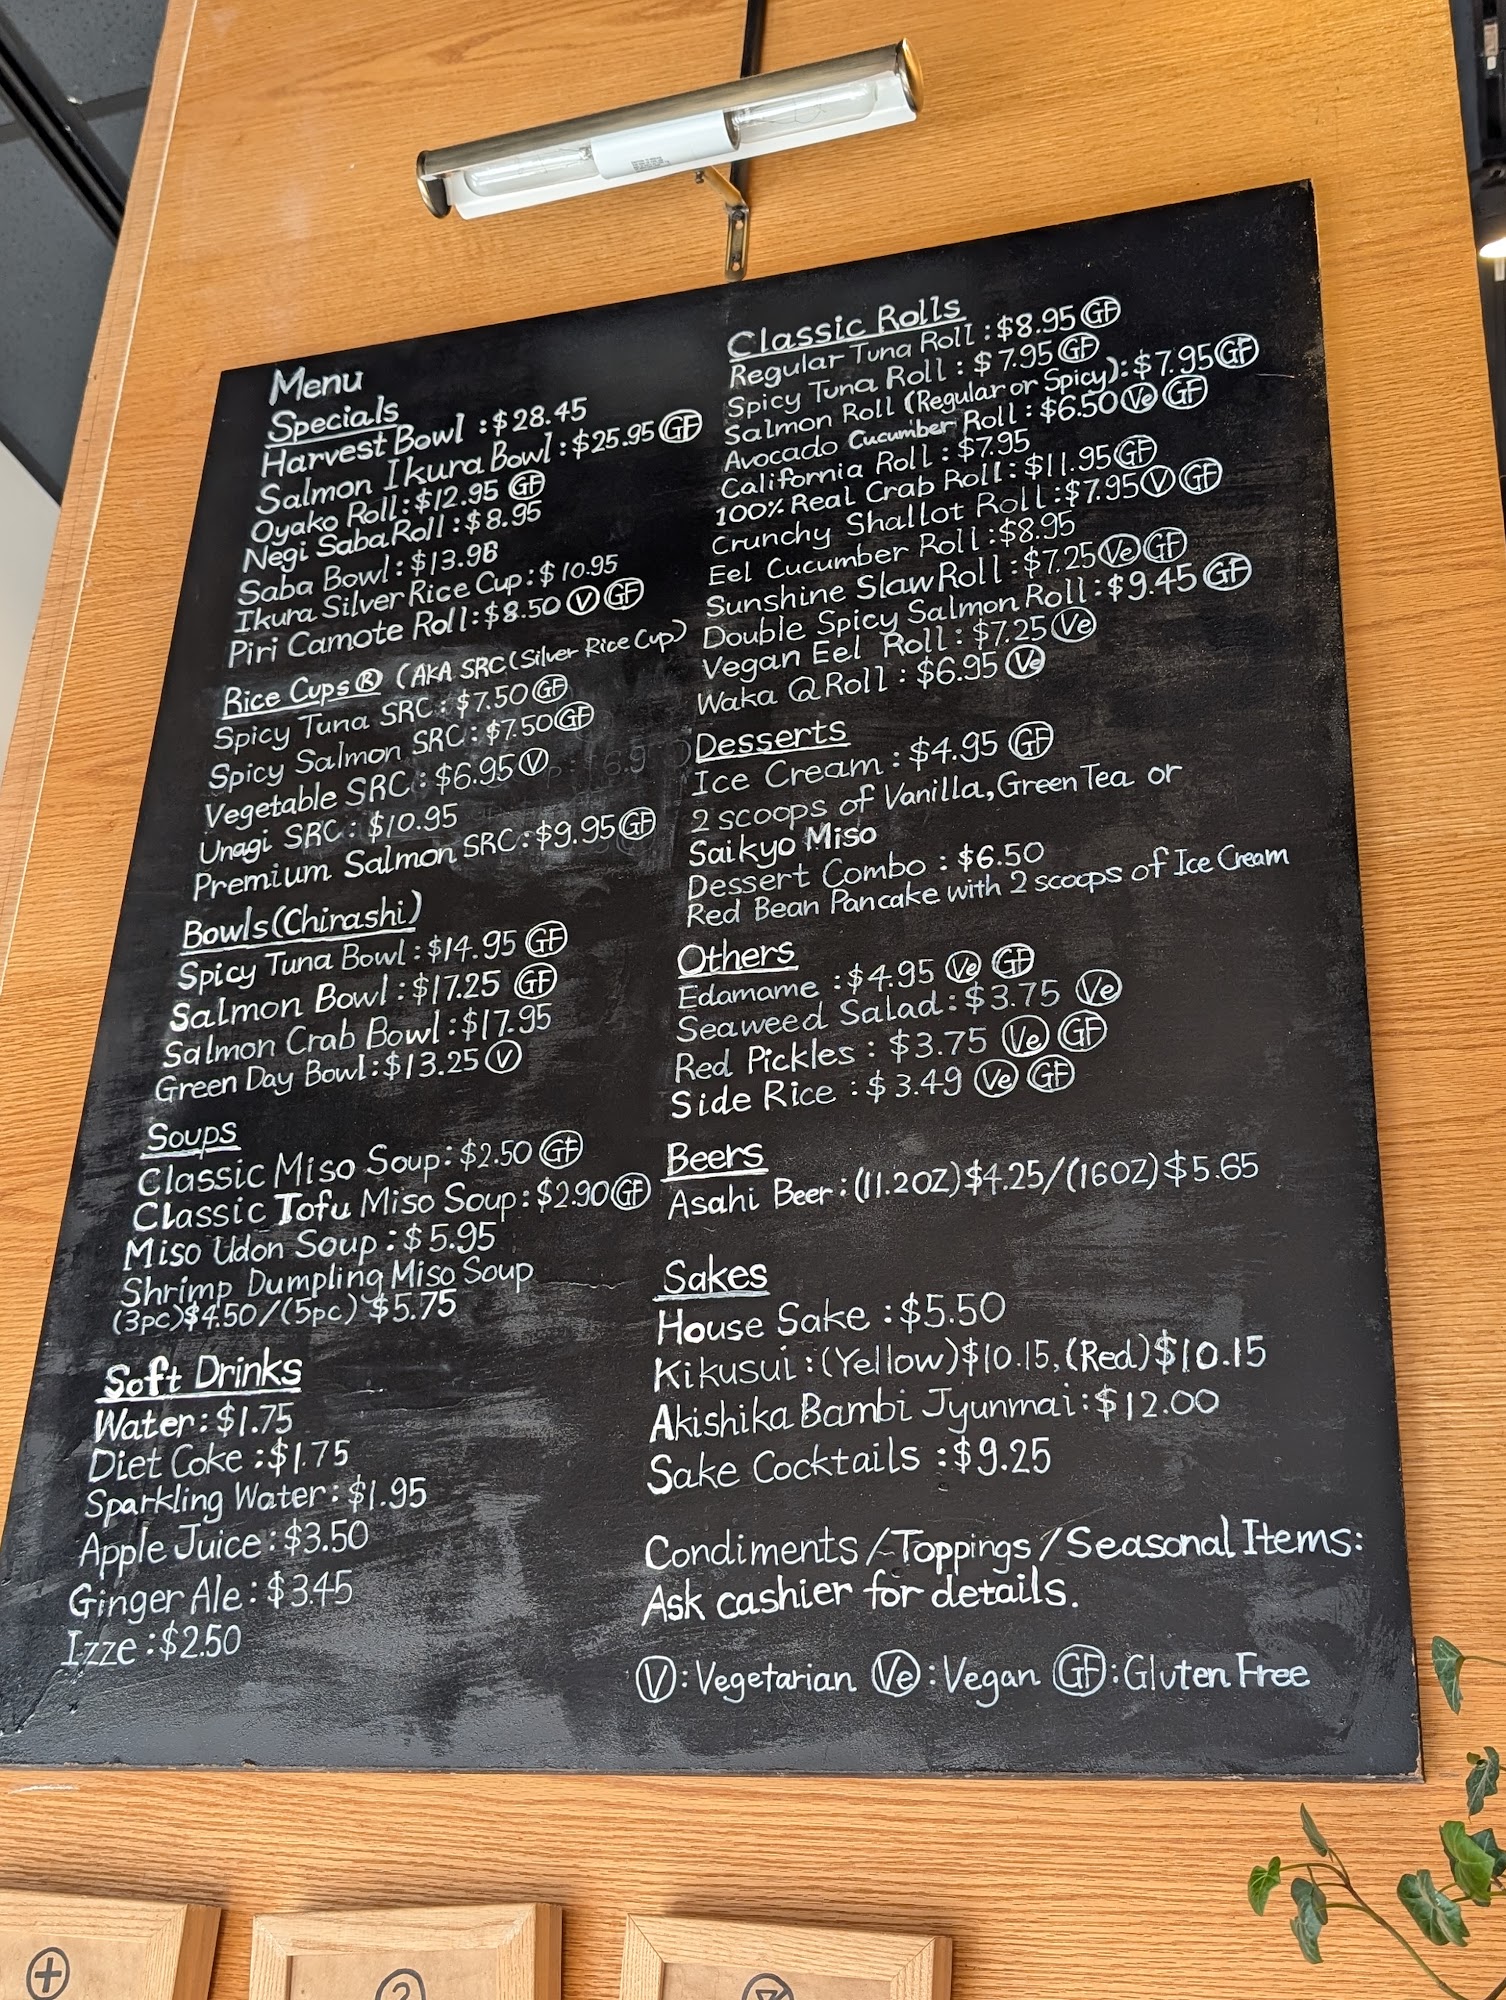 Menu
Specials
Harvest Bowl : $28.45
Salmon Ikura Bowl : $25.95 GF
Oyako Roll : $12.95 GF
Negi Saba Roll : $8.95
Saba Bowl : $13.96
Ikura Silver Rice Cup : $10.95
Piri Camote Roll : $8.50 V GF
Rice Cups® (AKA SRC (Silver Rice Cup)
Spicy Tuna SRC : $7.50 GF
Spicy Salmon SRC : $7.50 GF
Vegetable SRC : $6.95 V
Unagi SRC : $10.95
Premium Salmon SRC : $9.95 GF
Bowls (Chirashi)
Spicy Tuna Bowl : $14.95 GF
Salmon Bowl : $17.25 GF
Salmon Crab Bowl : $17.95
Green Day Bowl : $13.25 V
Soups
Classic Miso Soup : $2.50 GF
Classic Tofu Miso Soup : $2.90 GF
Miso Udon Soup : $5.95
Shrimp Dumpling Miso Soup
(3pc) $4.50 / (5pc) $5.75
Soft Drinks
Water : $1.75
Diet Coke : $1.75
Sparkling Water : $1.95
Apple Juice : $3.50
Ginger Ale : $3.45
Izze : $2.50
Classic Rolls
Regular Tuna Roll : $8.95 GF
Spicy Tuna Roll : $7.95 GF
Salmon Roll (Regular or Spicy) : $7.95 GF
Avocado Cucumber Roll : $6.50 Ve GF
California Roll : $7.95
100% Real Crab Roll : $11.95 GF
Crunchy Shallot Roll : $7.95 V GF
Eel Cucumber Roll : $8.95
Sunshine Slaw Roll : $7.25 Ve GF
Double Spicy Salmon Roll : $9.45 GF
Vegan Eel Roll : $7.25 Ve
Waka Q Roll : $6.95 Ve
Desserts
Ice Cream : $4.95 GF
2 scoops of Vanilla, Green Tea or
Saikyo Miso
Dessert Combo : $6.50
Red Bean Pancake with 2 scoops of Ice Cream
Others
Edamame : $4.95 Ve GF
Seaweed Salad : $3.75 Ve
Red Pickles : $3.75 Ve GF
Side Rice : $3.49 Ve GF
Beers
Asahi Beer : (11.2OZ) $4.25 / (16OZ) $5.65
Sakes
House Sake : $5.50
Kikusui : (Yellow) $10.15, (Red) $10.15
Akishika Bambi Jyunmai : $12.00
Sake Cocktails : $9.25
Condiments / Toppings / Seasonal Items:
Ask cashier for details.
V : Vegetarian Ve : Vegan GF : Gluten Free